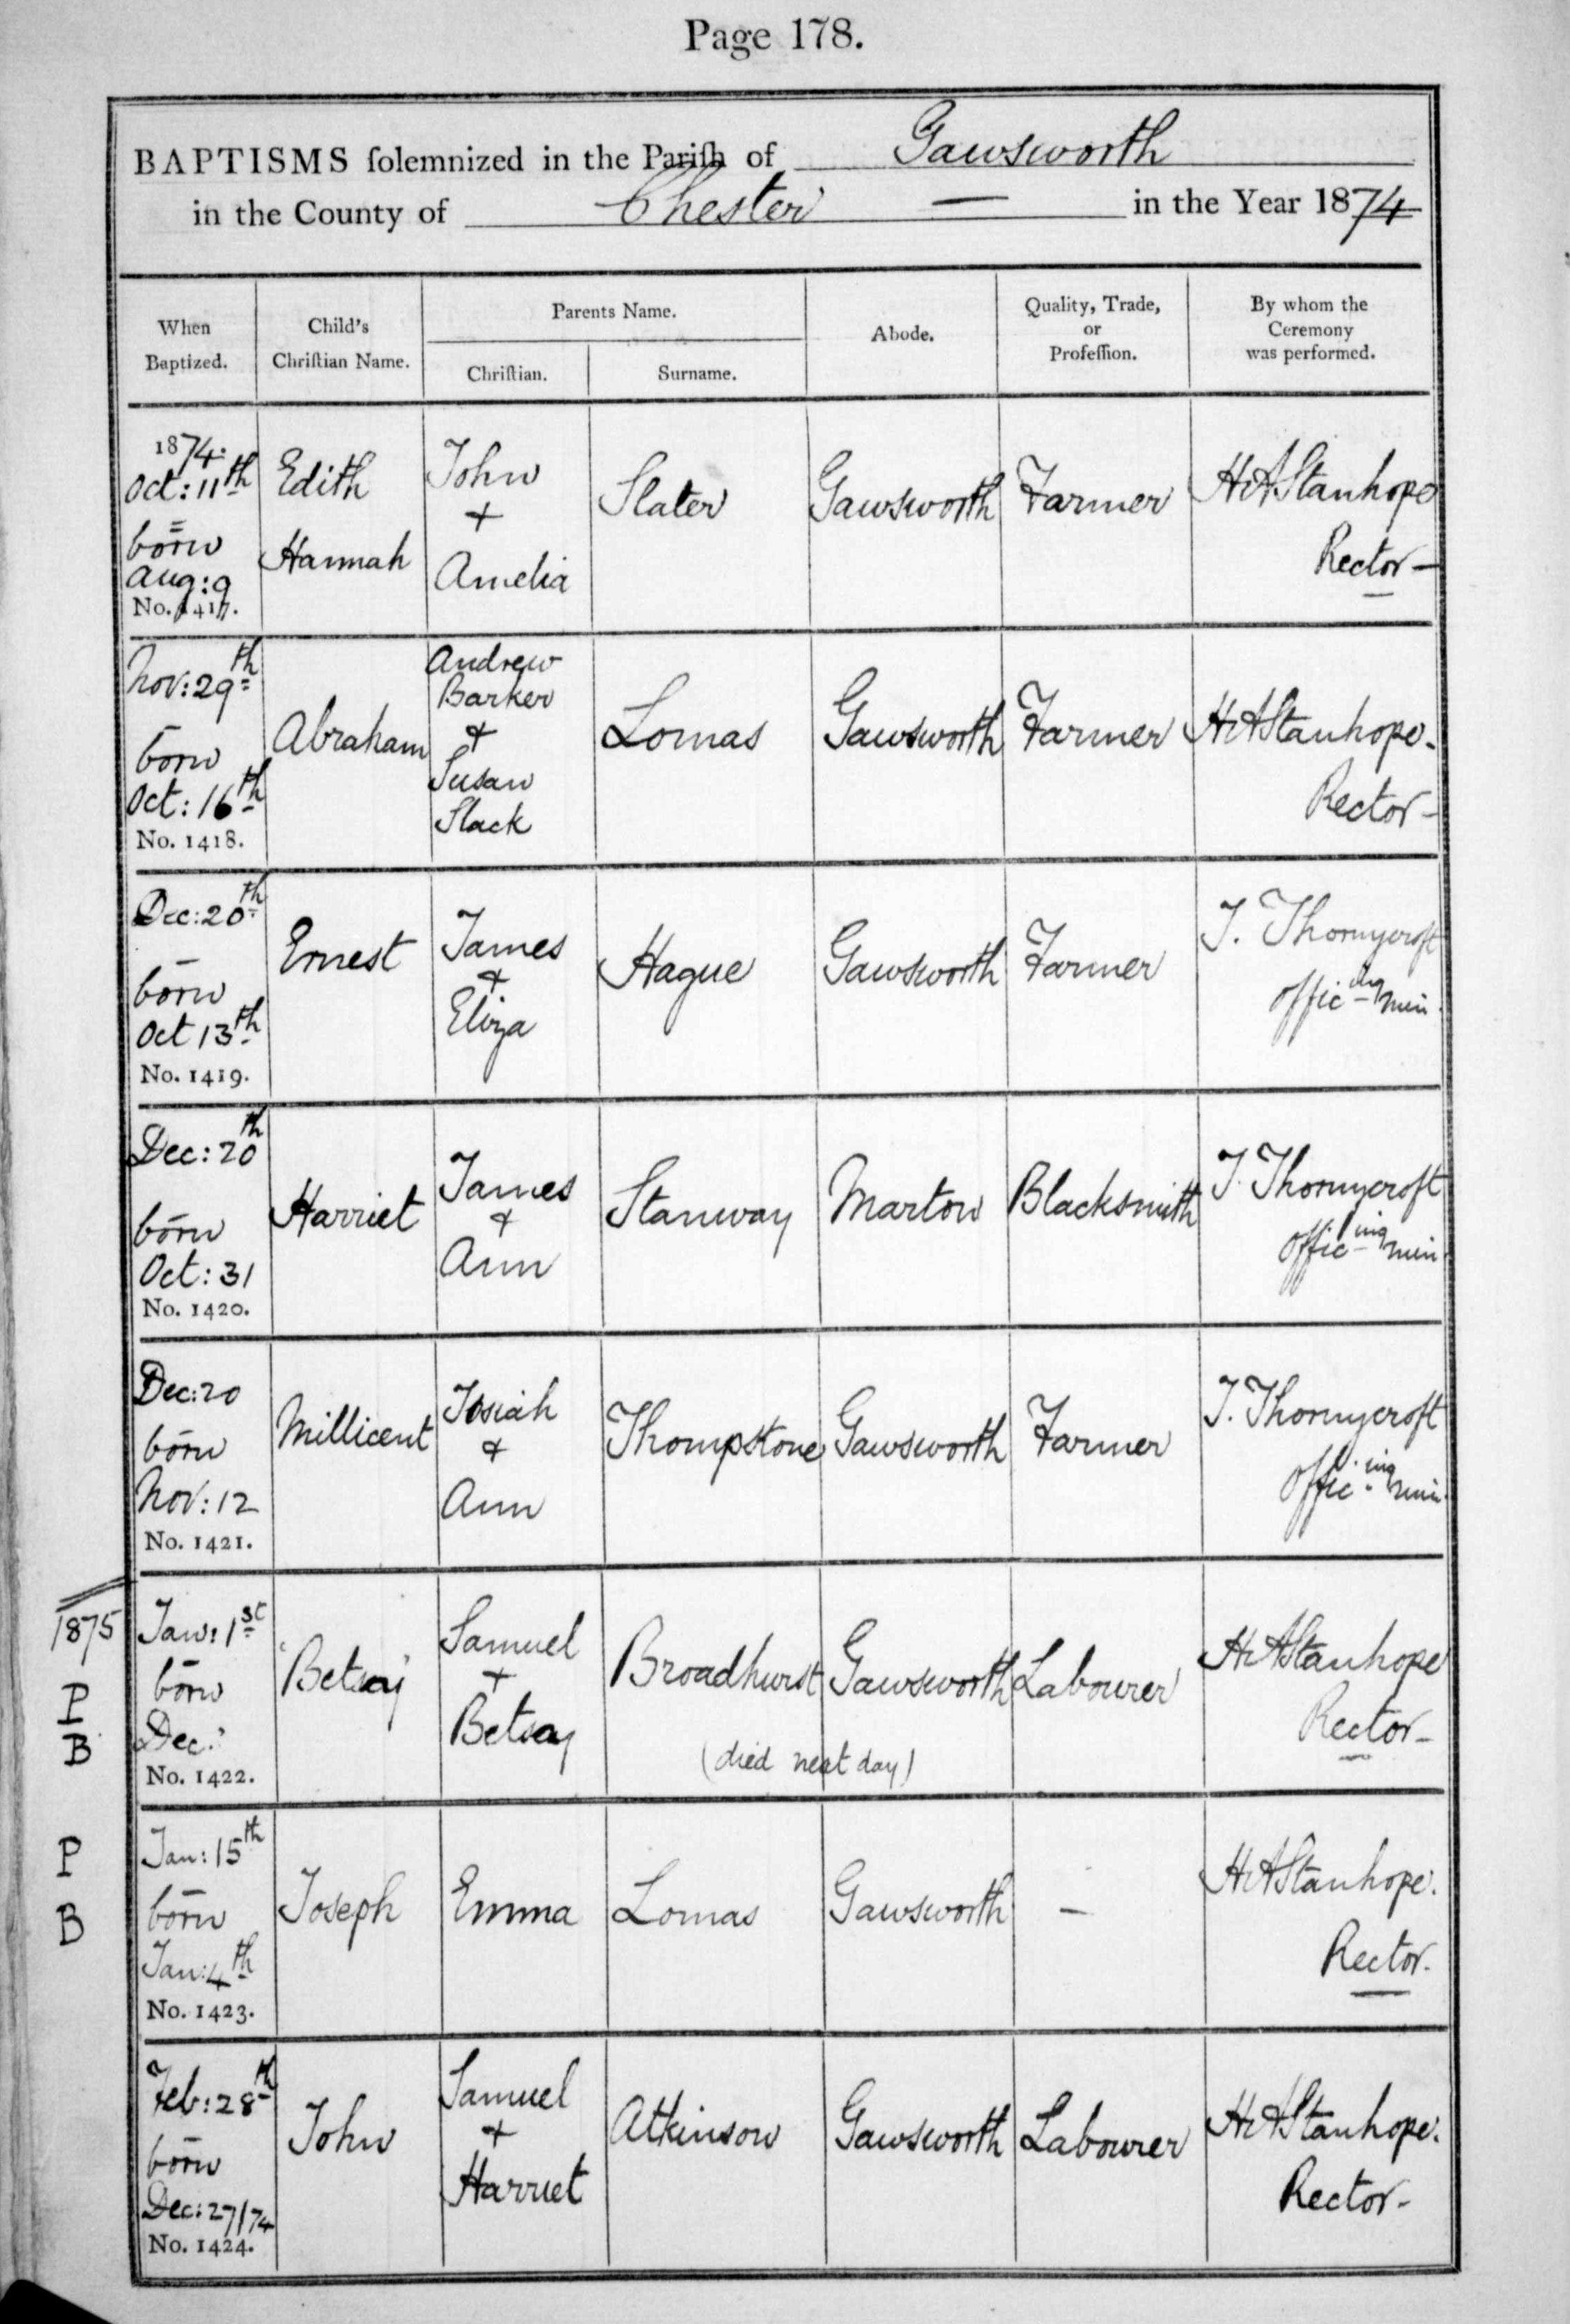 Page 178.
BAPTISMS solemnized in the Parish of Gawsworth
in the County of Chester — in the Year 1874
When Baptized.
Child's Christian Name.
Parents Name.
Christian.
Surname.
Abode.
Quality, Trade, or Profession.
By whom the Ceremony was performed.
1874.
Oct: 11th
born
Aug: 9
No. 1417.
Edith
Hannah
John
+
Amelia
Slater
Gawsworth
Farmer
H A Stanhope
Rector —
Nov: 29th
born
Oct: 16th
No. 1418.
Abraham
Andrew
Barker
+
Susan
Slack
Lomas
Gawsworth
Farmer
H A Stanhope.
Rector —
Dec: 20th
born
Oct 13th
No. 1419.
Ernest
James
+
Eliza
Hague
Gawsworth
Farmer
J. Thornycroft
Offic—ing min.
Dec: 20th
born
Oct: 31
No. 1420.
Harriet
James
+
Ann
Stanway
Marton
Blacksmith
J. Thornycroft
Offic—ing min.
Dec: 20
born
Nov: 12
No. 1421.
Millicent
Josiah
+
Ann
Thompstone
Gawsworth
Farmer
J. Thornycroft
Offic—ing min.
1875
P
B
Jan: 1st
born
Dec:
No. 1422.
Betsey
Samuel
+
Betsey
Broadhurst
Gawsworth
Labourer
(died next day)
H A Stanhope
Rector —
P
B
Jan: 15th
born
Jan: 4th
No. 1423.
Joseph
Emma
Lomas
Gawsworth
—
H A Stanhope.
Rector.
Feb: 28th
born
Dec: 27/74
No. 1424.
John
Samuel
+
Harriet
Atkinson
Gawsworth
Labourer
H A Stanhope.
Rector —